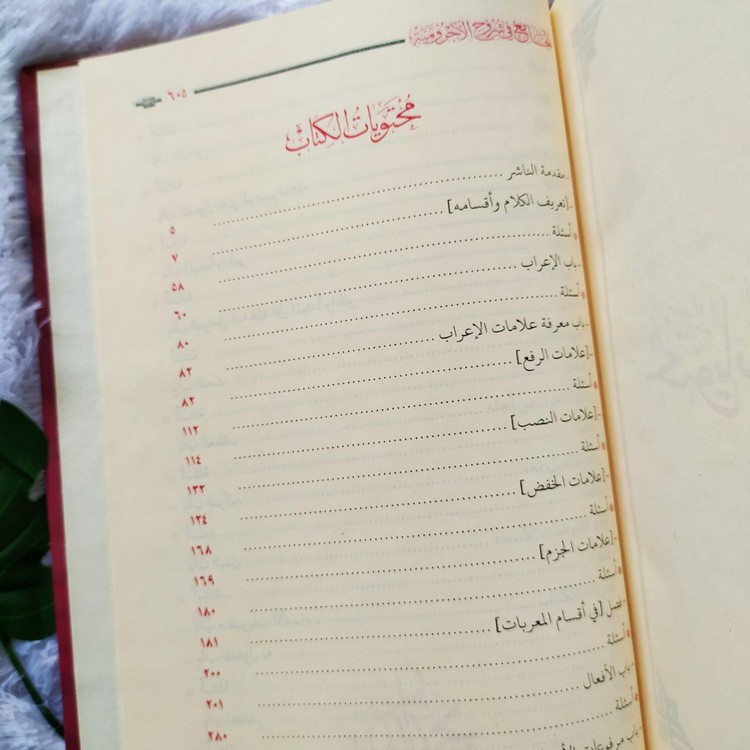 ٦٠٥ في شروح الآجرومية
محتويات الكتاب
- مقدمة الناشر ........ ٥
- [تعريف الكلام وأقسامه] ........ ٧
• أسئلة ........ ٥٨
- باب الإعراب ........ ٦٠
• أسئلة ........ ٨٠
- باب معرفة علامات الإعراب ........ ٨٢
- [علامات الرفع] ........ ٨٢
• أسئلة ........ ١١٢
- [علامات النصب] ........ ١١٤
• أسئلة ........ ١٣٣
- [علامات الخفض] ........ ١٣٤
• أسئلة ........ ١٦٨
- [علامات الجزم] ........ ١٦٩
• أسئلة ........ ١٨٠
- فصل [في أقسام المعربات] ........ ١٨١
• أسئلة ........ ٢٠٠
- باب الأفعال ........ ٢٠١
• أسئلة ........ ٢٨٠
- باب مرفوعات